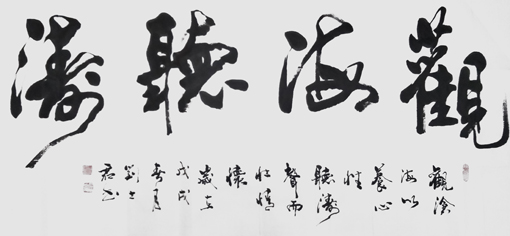 觀海聽濤
觀滄
海以
養心
性
聽濤
聲而
情
懷
歲在
戊戌
月
劉士
君書